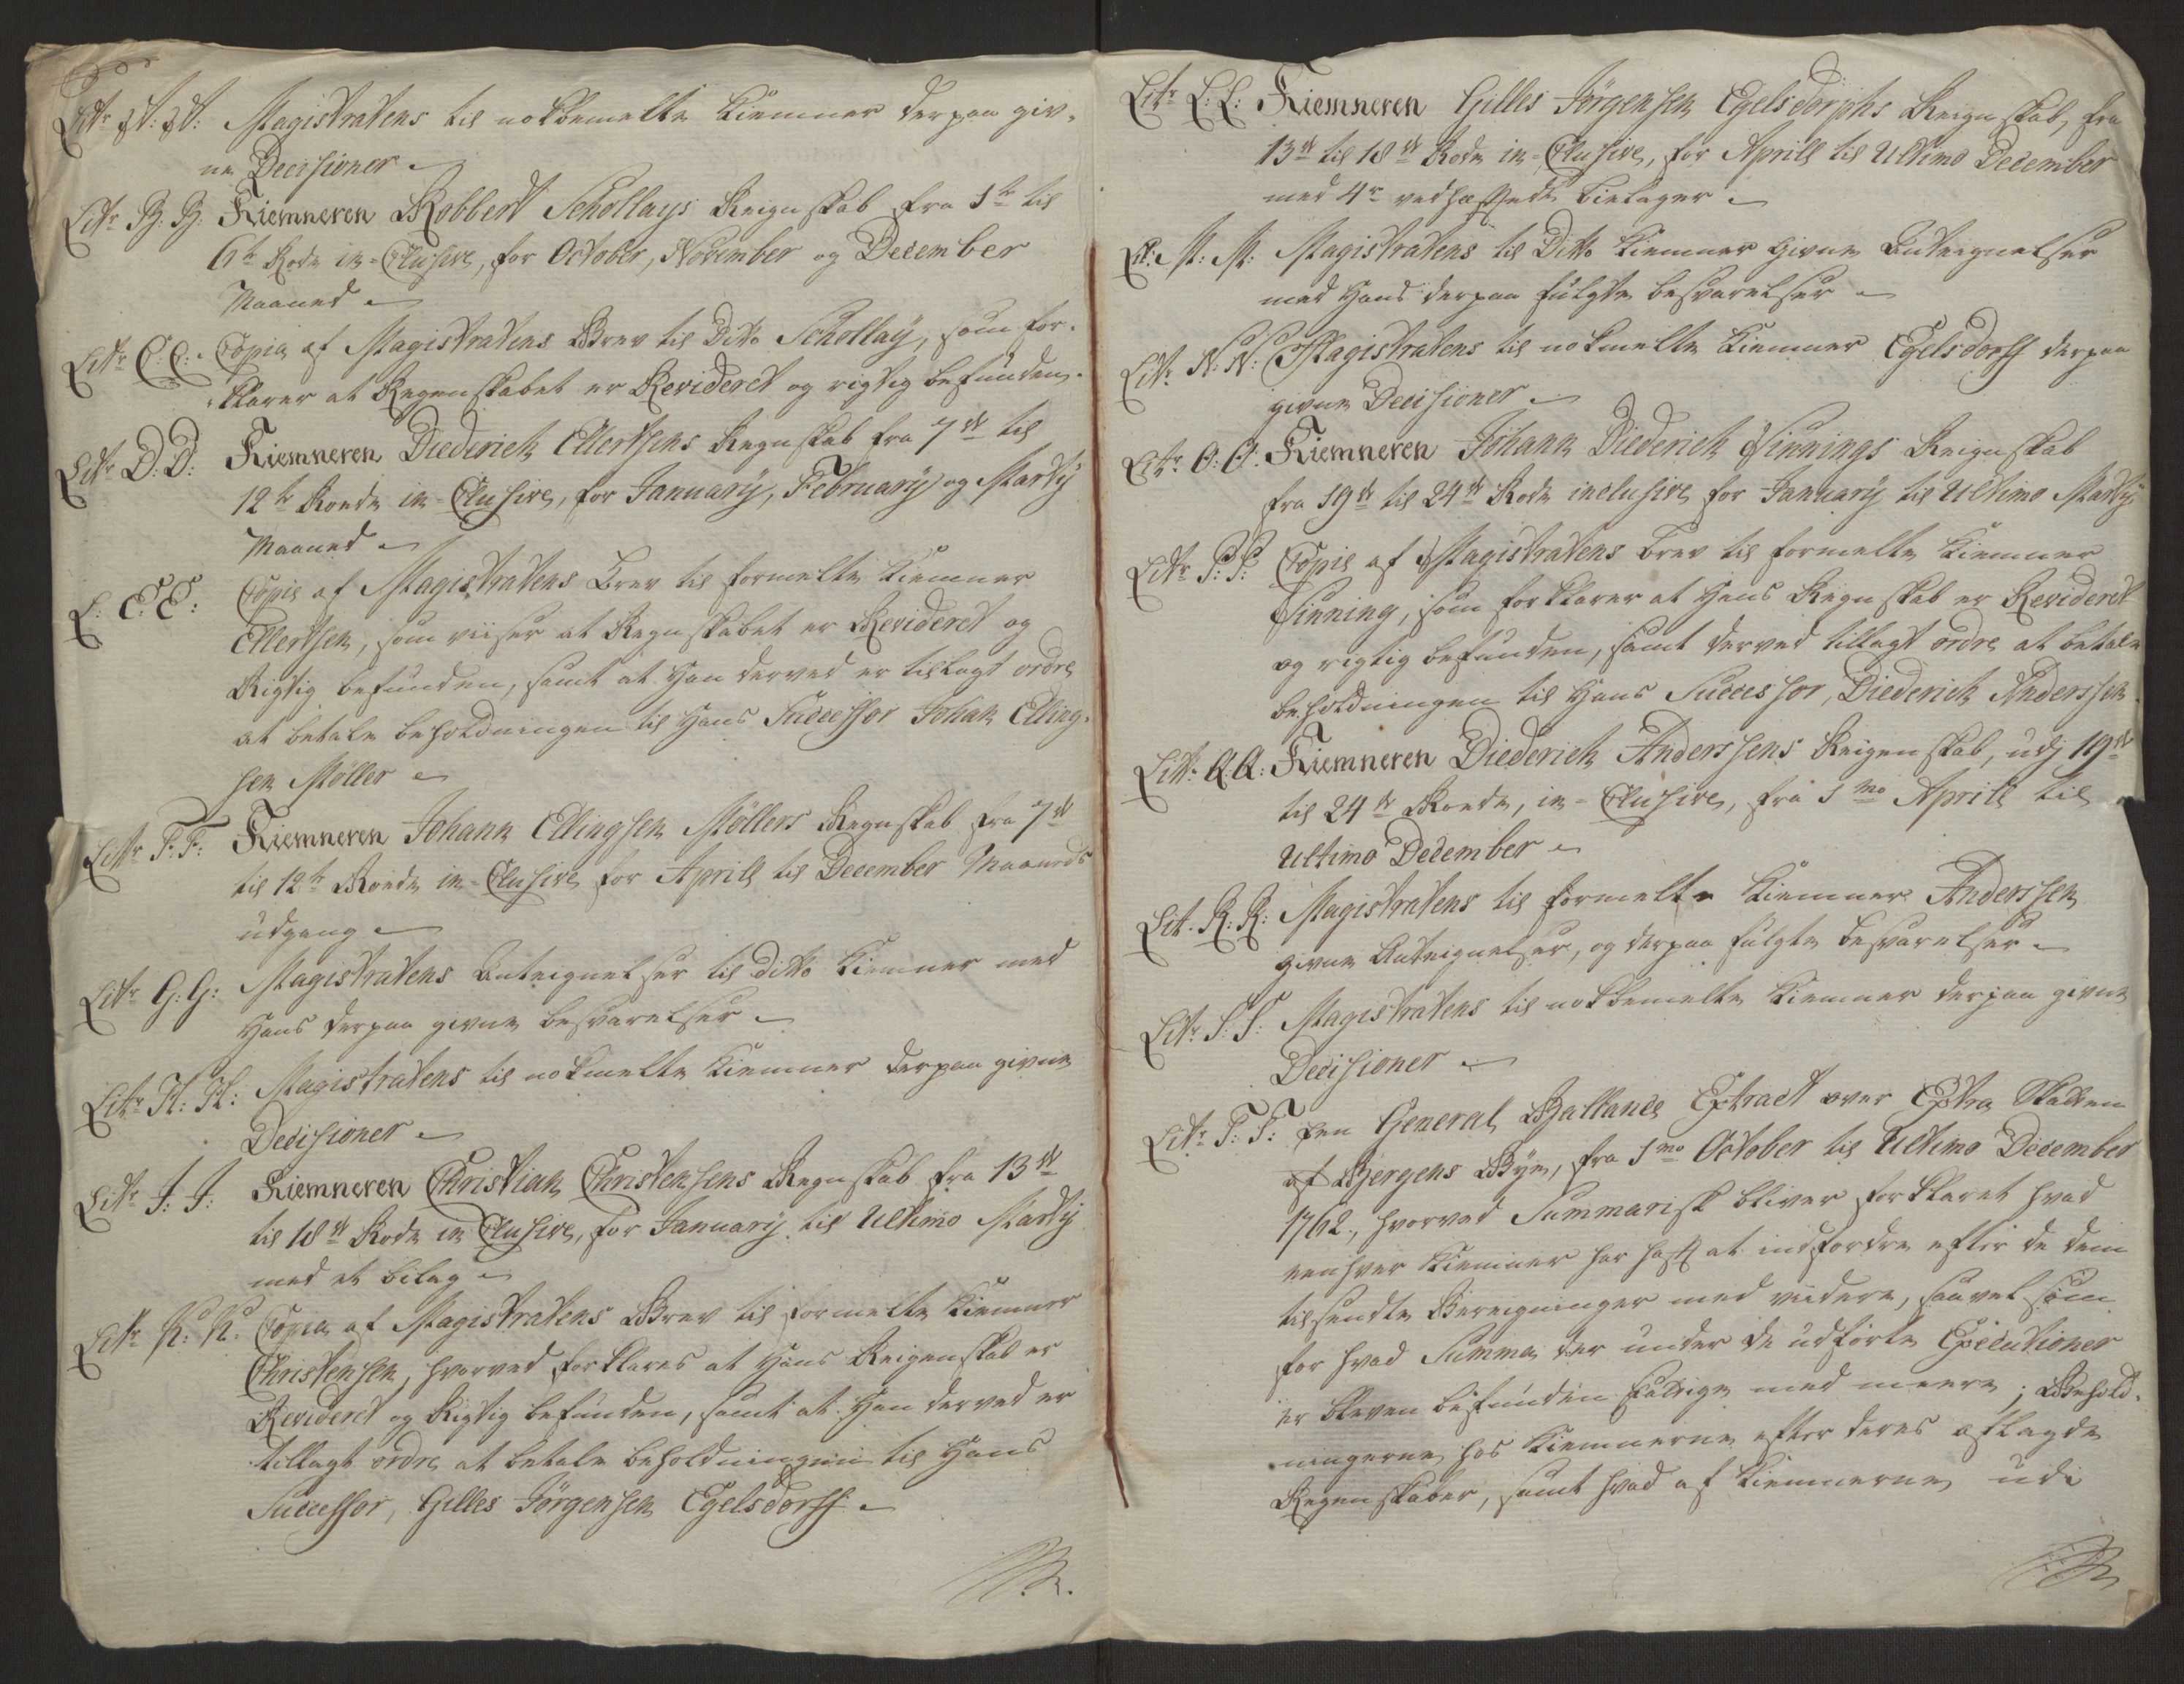 Litr A: A: Magistratens til nokbemelte Kiemner derpaa giv-
ne Decisioner
Litr B: B: Kiemneren Robbert Schollays Reignskab fra 1te til
6te Rode in-Clusive, for October, November og December
Maaned
Litr C: C: Copia af Magistratens Brev til Ditto Schollay, som for-
klarer at Regenskabet er Revideret og rigtig befunden.
Litr D: D: Kiemneren Diederich Ellertsens Regnskab fra 7de til
12te Roede in-Clusive, for January, February og Marty
Maaned
L: E: E: Copie af Magistratens Brev til formelte Kiemner
Ellertsen, som viiser at Regnskabet er Revideret og
Rigtig befunden, samt at Han derved er tillagt ordre
at betale beholdningen til Hans Successor Johan Elling-
sen Möller
Litr F: F: Kiemneren Johann Ellingsen Möllers Regnskab fra 7de
til 12te Roede in-Clusive for Aprill til December Maaneds
udgang
Litr G: G: Magistratens Anteignelser til Ditto Kiemner med
Hans derpaa givne besvarelser
Litr H: H: Magistratens til nokmelte Kiemner derpaa givne
Decisioner
Litr J: J: Kiemneren Christian Christensens Regnskab fra 13de
til 18de Rode in Clusive, for January til Ultimo Marty
med et bilag
Litr K: K: Copia af Magistratens Brev til formelte Kiemner
Christensen, hvorved forklares at Hans Reigenskab er
Revideret og Rigtig befunden, samt at Han derved er
tillagt ordre at betale beholdningen til Hans
Successor, Gilles Jörgensen Egelsdorff
Litr L: L: Kiemneren Gilles Jörgensen Egelsdorphs Reignskab, fra
13de til 18de Rode in-Clusive, for Aprill til Ultimo December
med 4re vedhæftede bielager
Lit: M: M: Magistratens til Ditto Kiemner givne Anteignelser
med Hans derpaa fulgte besvarelser
Litr N: N: Magistratens til nokmelte Kiemner Egelsdorff derpaa
givne Decisioner
Litr O: O: Kiemneren Johann Diederich Sinnings Reignskab
fra 19de til 24de Rode inclusive for January til Ultimo Marty
Litr P: P: Copie af Magistratens Brev til formelte Kiemner
Sinning, som forklarer at Hans Regnskab er Revideret
og rigtig befunden, samt derved tillagt ordre at betale
beholdningen til Hans Successor, Diederich Anderssen
Litr Q: Q: Kiemneren Diederich Anderssens Reigenskab, udj 19de
til 24de Roede, in-Clusive, fra 1mo Aprill til
Ultimo December
Lit. R: R: Magistratens til formelte Kiemner Anderssen
givne Anteignelser, og derpaa fulgte besvarelser
Litr S: S: Magistratens til nokbemelte Kiemner derpaa givne
Decisioner
Litr T: T: Een General Ballance Extract over Extra Skatten
af Bergens Bye, fra 1mo October til Ultimo December
1762, hvorved Summarisk bliver forklaret hvad
eenhver Kiemner har haft at indfordre efter de dem
tilsendte Beregninger med viidere, saavel som
for hvad Summa der under de udförte Executioner
er bleven befunden skyldige med meere; Behold-
ningerne hos Kiemnerne efter deres aflagde
Regenskaber, samt hvad af Kiemnerne udi